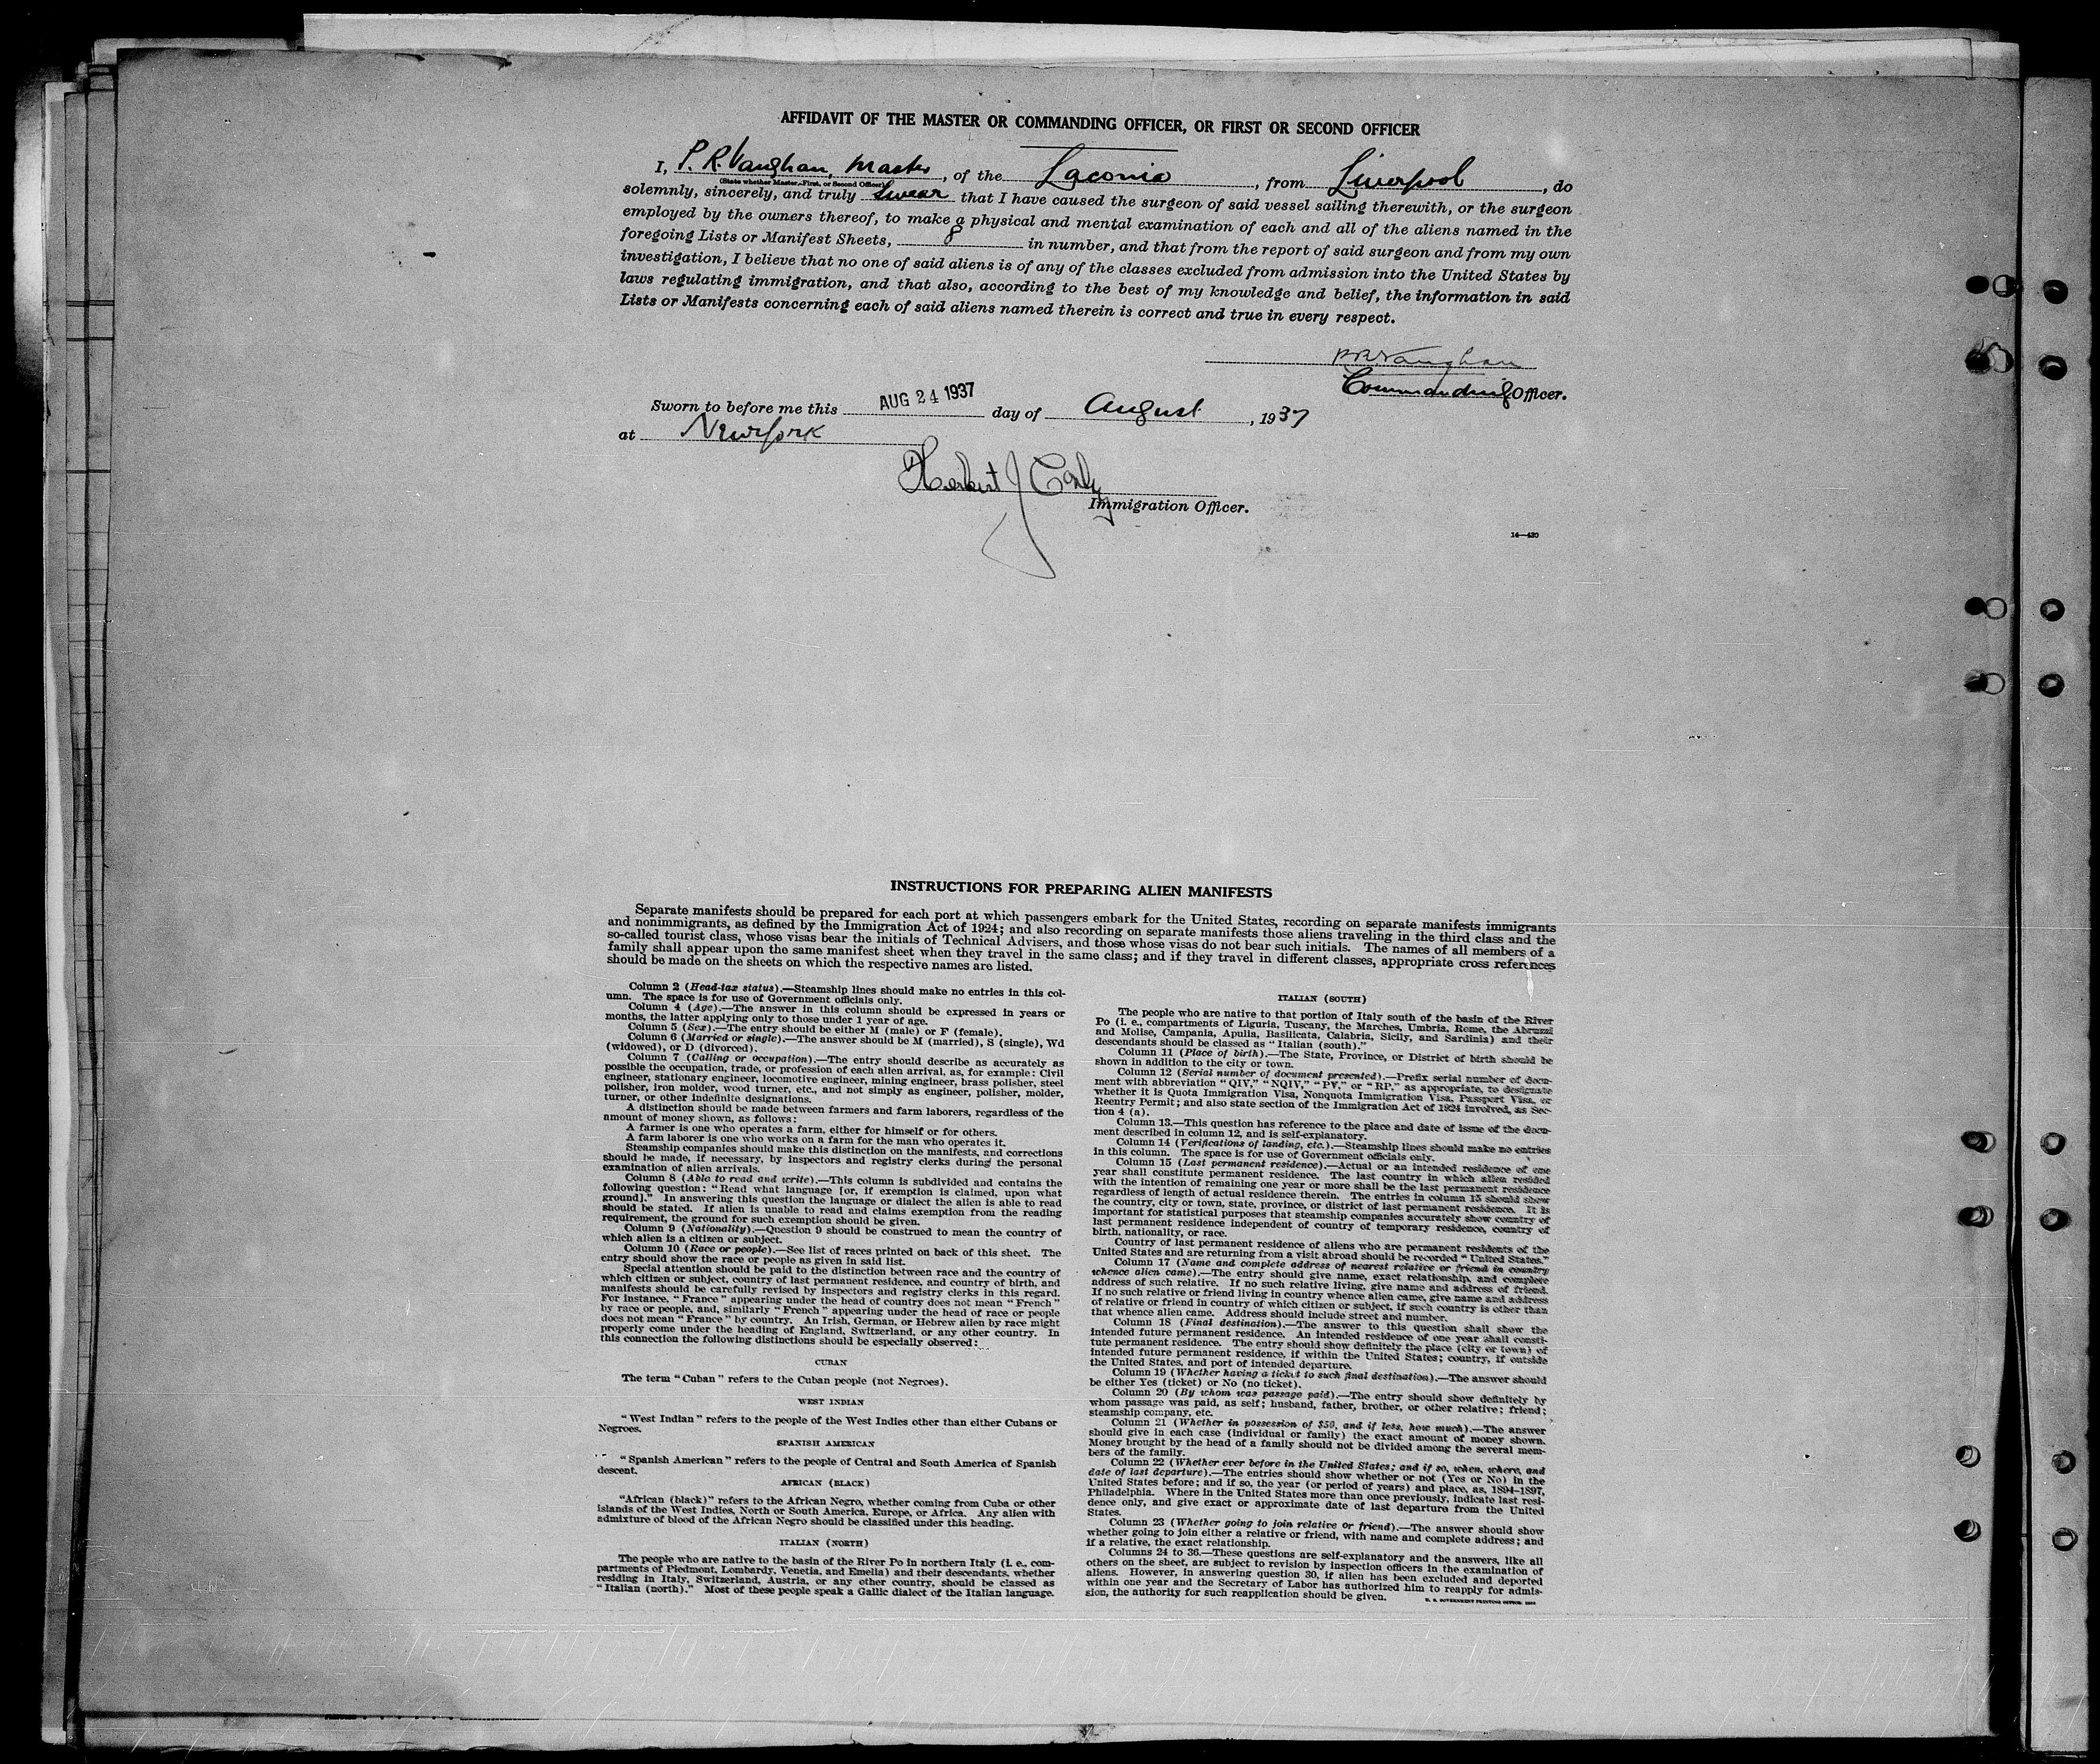 AFFIDAVIT OF THE MASTER OR COMMANDING OFFICER, OR FIRST OR SECOND OFFICER
I, P. R. Vaughan, Master, of the Laconia, from Liverpool, do
(State whether Master, First, or Second Officer)
solemnly, sincerely, and truly swear that I have caused the surgeon of said vessel sailing therewith, or the surgeon
employed by the owners thereof, to make a physical and mental examination of each and all of the aliens named in the
foregoing Lists or Manifest Sheets, 8 in number, and that from the report of said surgeon and from my own
investigation, I believe that no one of said aliens is of any of the classes excluded from admission into the United States by
laws regulating immigration, and that also, according to the best of my knowledge and belief, the information in said
Lists or Manifests concerning each of said aliens named therein is correct and true in every respect.
P R Vaughan
Commanding Officer.
Sworn to before me this AUG 24 1937 day of August, 1937
at New York
Herbert J
Immigration Officer.
14—420
INSTRUCTIONS FOR PREPARING ALIEN MANIFESTS
Separate manifests should be prepared for each port at which passengers embark for the United States, recording on separate manifests immigrants
and nonimmigrants, as defined by the Immigration Act of 1924; and also recording on separate manifests those aliens traveling in the third class and the
so-called tourist class, whose visas bear the initials of Technical Advisers, and those whose visas do not bear such initials. The names of all members of a
family shall appear upon the same manifest sheet when they travel in the same class; and if they travel in different classes, appropriate cross references
should be made on the sheets on which the respective names are listed.
Column 2 (Head-tax status).—Steamship lines should make no entries in this col-
umn. The space is for use of Government officials only.
Column 4 (Age).—The answer in this column should be expressed in years or
months, the latter applying only to those under 1 year of age.
Column 5 (Sex).—The entry should be either M (male) or F (female).
Column 6 (Married or single).—The answer should be M (married), S (single), Wd
(widowed), or D (divorced).
Column 7 (Calling or occupation).—The entry should describe as accurately as
possible the occupation, trade, or profession of each alien arrival, as, for example: Civil
engineer, stationary engineer, locomotive engineer, mining engineer, brass polisher, steel
polisher, iron molder, wood turner, etc., and not simply as engineer, polisher, molder,
turner, or other indefinite designations.
A distinction should be made between farmers and farm laborers, regardless of the
amount of money shown, as follows:
A farmer is one who operates a farm, either for himself or for others.
A farm laborer is one who works on a farm for the man who operates it.
Steamship companies should make this distinction on the manifests, and corrections
should be made, if necessary, by inspectors and registry clerks during the personal
examination of alien arrivals.
Column 8 (Able to read and write).—This column is subdivided and contains the
following question: "Read what language [or, if exemption is claimed, upon what
ground]." In answering this question the language or dialect the alien is able to read
should be stated. If alien is unable to read and claims exemption from the reading
requirement, the ground for such exemption should be given.
Column 9 (Nationality).—Question 9 should be construed to mean the country of
which alien is a citizen or subject.
Column 10 (Race or people).—See list of races printed on back of this sheet. The
entry should show the race or people as given in said list.
Special attention should be paid to the distinction between race and the country of
which citizen or subject, country of last permanent residence, and country of birth, and
manifests should be carefully revised by inspectors and registry clerks in this regard.
For instance, "France" appearing under the head of country does not mean "French"
by race or people, and, similarly "French" appearing under the head of race or people
does not mean "France" by country. An Irish, German, or Hebrew alien by race might
properly come under the heading of England, Switzerland, or any other country. In
this connection the following distinctions should be especially observed:
CUBAN
The term "Cuban" refers to the Cuban people (not Negroes).
WEST INDIAN
"West Indian" refers to the people of the West Indies other than either Cubans or
Negroes.
SPANISH AMERICAN
"Spanish American" refers to the people of Central and South America of Spanish
descent.
AFRICAN (BLACK)
"African (black)" refers to the African Negro, whether coming from Cuba or other
islands of the West Indies, North or South America, Europe, or Africa. Any alien with
admixture of blood of the African Negro should be classified under this heading.
ITALIAN (NORTH)
The people who are native to the basin of the River Po in northern Italy (i. e., com-
partments of Piedmont, Lombardy, Venetia, and Emelia) and their descendants, whether
residing in Italy, Switzerland, Austria, or any other country, should be classed as
"Italian (north)." Most of these people speak a Gallic dialect of the Italian language.
ITALIAN (SOUTH)
The people who are native to that portion of Italy south of the basin of the River
Po (i. e., compartments of Liguria, Tuscany, the Marches, Umbria, Rome, the Abruzzi
and Molise, Campania, Apulia, Basilicata, Calabria, Sicily, and Sardinia) and their
descendants should be classed as "Italian (south)."
Column 11 (Place of birth).—The State, Province, or District of birth should be
shown in addition to the city or town.
Column 12 (Serial number of document presented).—Prefix serial number of docu-
ment with abbreviation "QIV," "NQIV," "PV," or "RP," as appropriate, to designate
whether it is Quota Immigration Visa, Nonquota Immigration Visa, Passport Visa, or
Reentry Permit; and also state section of the Immigration Act of 1924 involved, as Sec-
tion 4 (a).
Column 13.—This question has reference to the place and date of issue of the docu-
ment described in column 12, and is self-explanatory.
Column 14 (Verifications of landing, etc.).—Steamship lines should make no entries
in this column. The space is for use of Government officials only.
Column 15 (Last permanent residence).—Actual or an intended residence of one
year shall constitute permanent residence. The last country in which alien resided
with the intention of remaining one year or more shall be the last permanent residence
regardless of length of actual residence therein. The entries in column 15 should show
the country, city or town, state, province, or district of last permanent residence. It is
important for statistical purposes that steamship companies accurately show country of
last permanent residence independent of country of temporary residence, country of
birth, nationality, or race.
Country of last permanent residence of aliens who are permanent residents of the
United States and are returning from a visit abroad should be recorded "United States."
Column 17 (Name and complete address of nearest relative or friend in country
whence alien came).—The entry should give name, exact relationship, and complete
address of such relative. If no such relative living, give name and address of friend.
If no such relative or friend living in country whence alien came, give name and address
of relative or friend in country of which citizen or subject, if such country is other than
that whence alien came. Address should include street and number.
Column 18 (Final destination).—The answer to this question shall show the
intended future permanent residence. An intended residence of one year shall consti-
tute permanent residence. The entry should show definitely the place (city or town) of
intended future permanent residence, if within the United States; country, if outside
the United States, and port of intended departure.
Column 19 (Whether having a ticket to such final destination).—The answer should
be either Yes (ticket) or No (no ticket).
Column 20 (By whom was passage paid).—The entry should show definitely by
whom passage was paid, as self; husband, father, brother, or other relative; friend;
steamship company, etc.
Column 21 (Whether in possession of $50, and if less, how much).—The answer
should give in each case (individual or family) the exact amount of money shown.
Money brought by the head of a family should not be divided among the several mem-
bers of the family.
Column 22 (Whether ever before in the United States; and if so, when, where, and
date of last departure).—The entries should show whether or not (Yes or No) in the
United States before; and if so, the year (or period of years) and place, as, 1894–1897,
Philadelphia. Where in the United States more than once previously, indicate last resi-
dence only, and give exact or approximate date of last departure from the United
States.
Column 23 (Whether going to join relative or friend).—The answer should show
whether going to join either a relative or friend, with name and complete address; and
if a relative, the exact relationship.
Columns 24 to 36.—These questions are self-explanatory and the answers, like all
others on the sheet, are subject to revision by inspection officers in the examination of
aliens. However, in answering question 30, if alien has been excluded and deported
within one year and the Secretary of Labor has authorized him to reapply for admis-
sion, the authority for such reapplication should be given.
U. S. GOVERNMENT PRINTING OFFICE